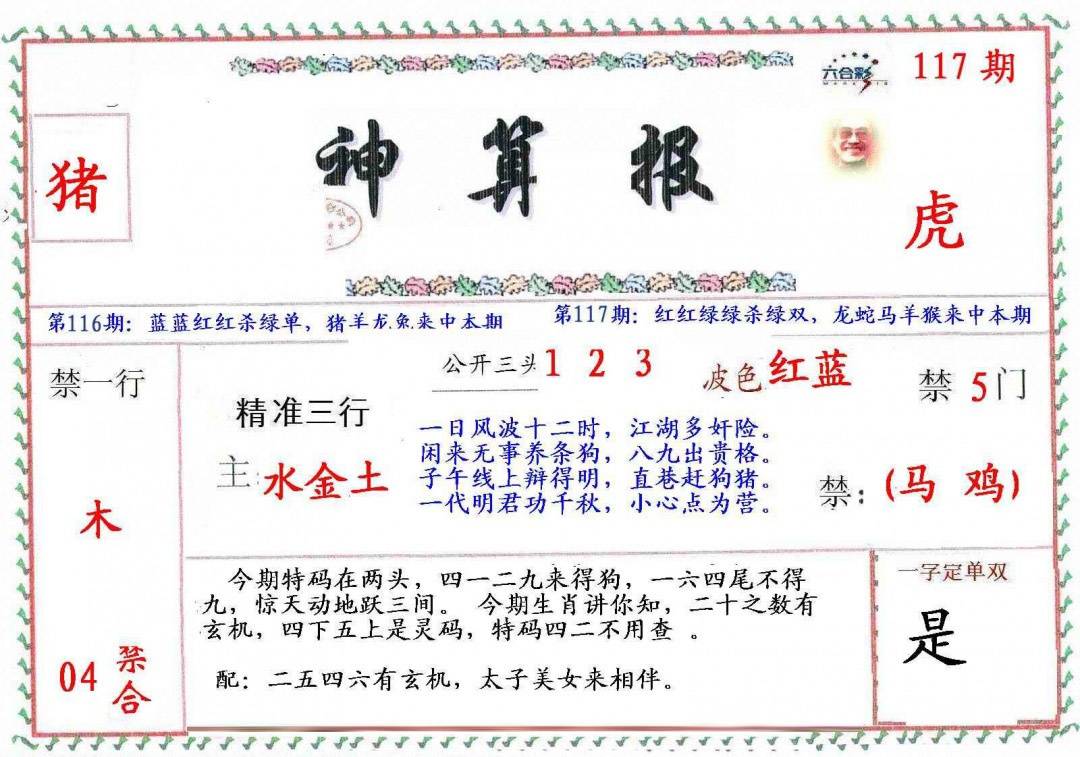 六合彩
117 期
猪
神算报
虎
第116期：蓝蓝红红杀绿单，猪羊龙兔来中本期
第117期：红红绿绿杀绿双，龙蛇马羊猴来中本期
禁一行
木
04 禁合
精准三行
主:水金土
公开三头 1 2 3
波色 红蓝
禁 5 门
一日风波十二时，江湖多奸险。
闲来无事养条狗，八九出贵格。
子午线上辩得明，直巷赶狗猪。
一代明君功千秋，小心点为营。
禁：(马 鸡)
今期特码在两头，四一二九来得狗，一六四尾不得
九，惊天动地跃三间。 今期生肖讲你知，二十之数有
玄机，四下五上是灵码，特码四二不用查 。
配：二五四六有玄机，太子美女来相伴。
一字定单双
是